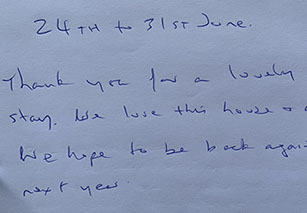 24TH to 31ST June.
Thank you for a lovely
stay. We love this house &
We hope to be back again
next year.